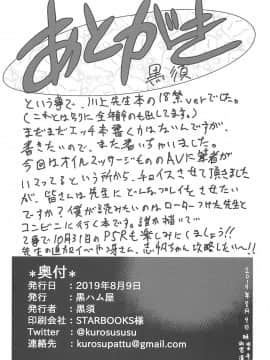 あとがき
黒須
という事で、川上先生本の18禁verでした。
(こちらとは別に全年齢のも出してます。)
まだまだエッチ本書く力はないんですが、
書きたいので、また書いちゃいました。
今回はオイルマッサージもののAVに筆者が
ハマってるという所から、チョイスさせて頂きました
が、皆さんは先生にどんなプレイをさせたい
ですか?僕が読みたいのは、ローターつけた先生と
コンビニに行く本です。誰か描いて…
て事で10月31日のP5Rも楽しみにしましょう!!
*奥付*
発行日 : 2019年8月9日
発行 : 黒ハム屋
発行者 : 黒須
印刷会社 : STARBOOKS様
Twitter : @kurosususu
連絡先 : kurosupattu@gmail.com
2019年8月9日